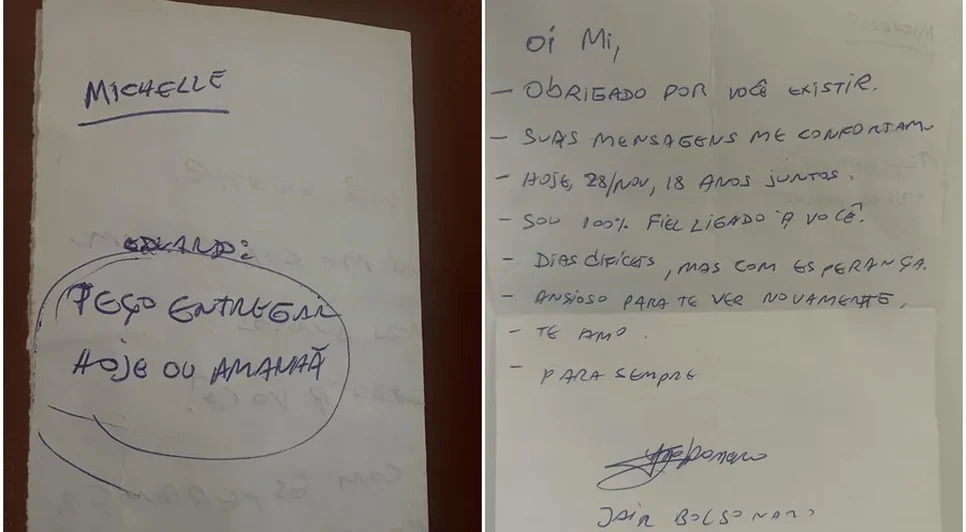 MICHELLE
EDUARDO:
PEÇO ENTREGAR
HOJE OU AMANHÃ
Oi Mi,
- OBRIGADO POR VOCÊ EXISTIR.
- SUAS MENSAGENS ME CONFORTAM.
- HOJE, 28/NOV, 18 ANOS JUNTOS.
- SOU 100% FIEL LIGADO À VOCÊ.
- DIAS DIFÍCEIS, MAS COM ESPERANÇA.
- ANSIOSO PARA TE VER NOVAMENTE.
- TE AMO.
- PARA SEMPRE
JAIR BOLSONARO